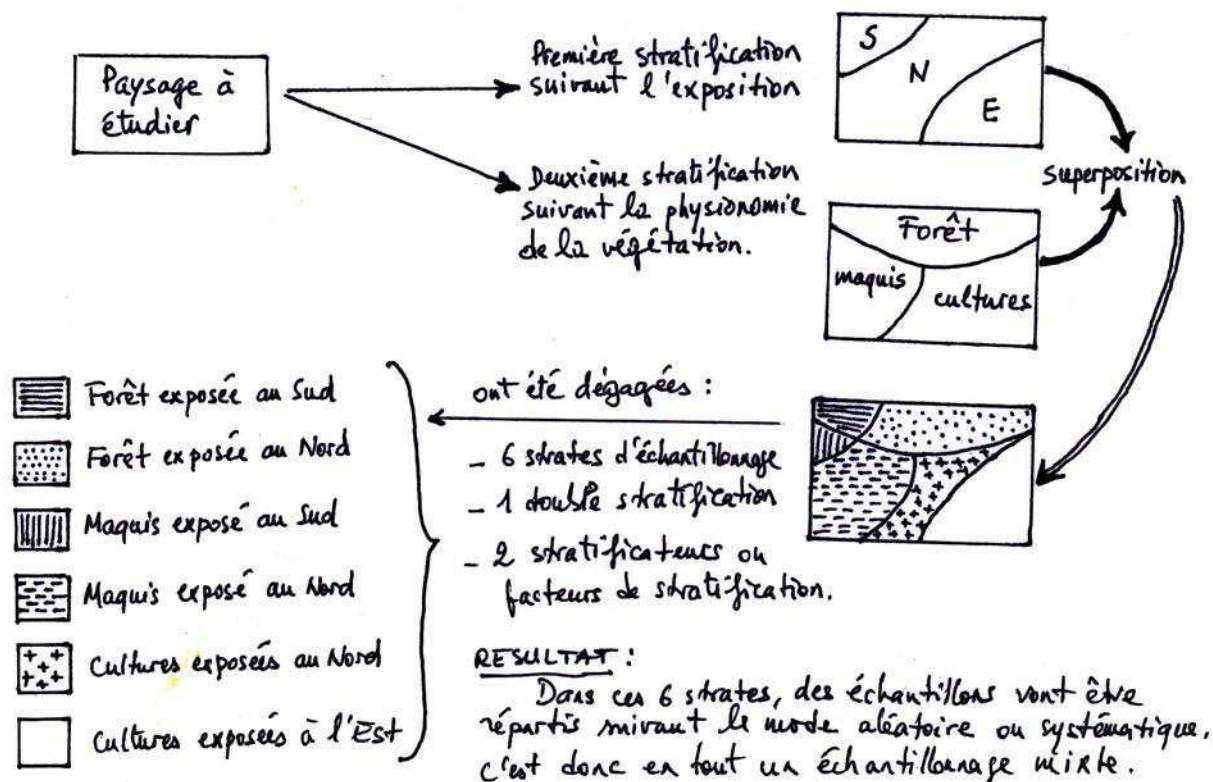 Paysage à
étudier
Première stratification
suivant l'exposition
S
N
E
Deuxième stratification
suivant la physionomie
de la végétation.
superposition
Forêt
maquis
cultures
Forêt exposée au Sud
Forêt exposée au Nord
Maquis exposé au Sud
Maquis exposé au Nord
Cultures exposées au Nord
Cultures exposées à l'Est
ont été dégagées :
- 6 strates d'échantillonnage
- 1 double stratification
- 2 stratificateurs ou
facteurs de stratification.
RESULTAT :
Dans ces 6 strates, des échantillons vont être
répartis suivant le mode aléatoire ou systématique,
c'est donc en tout un échantillonnage mixte.